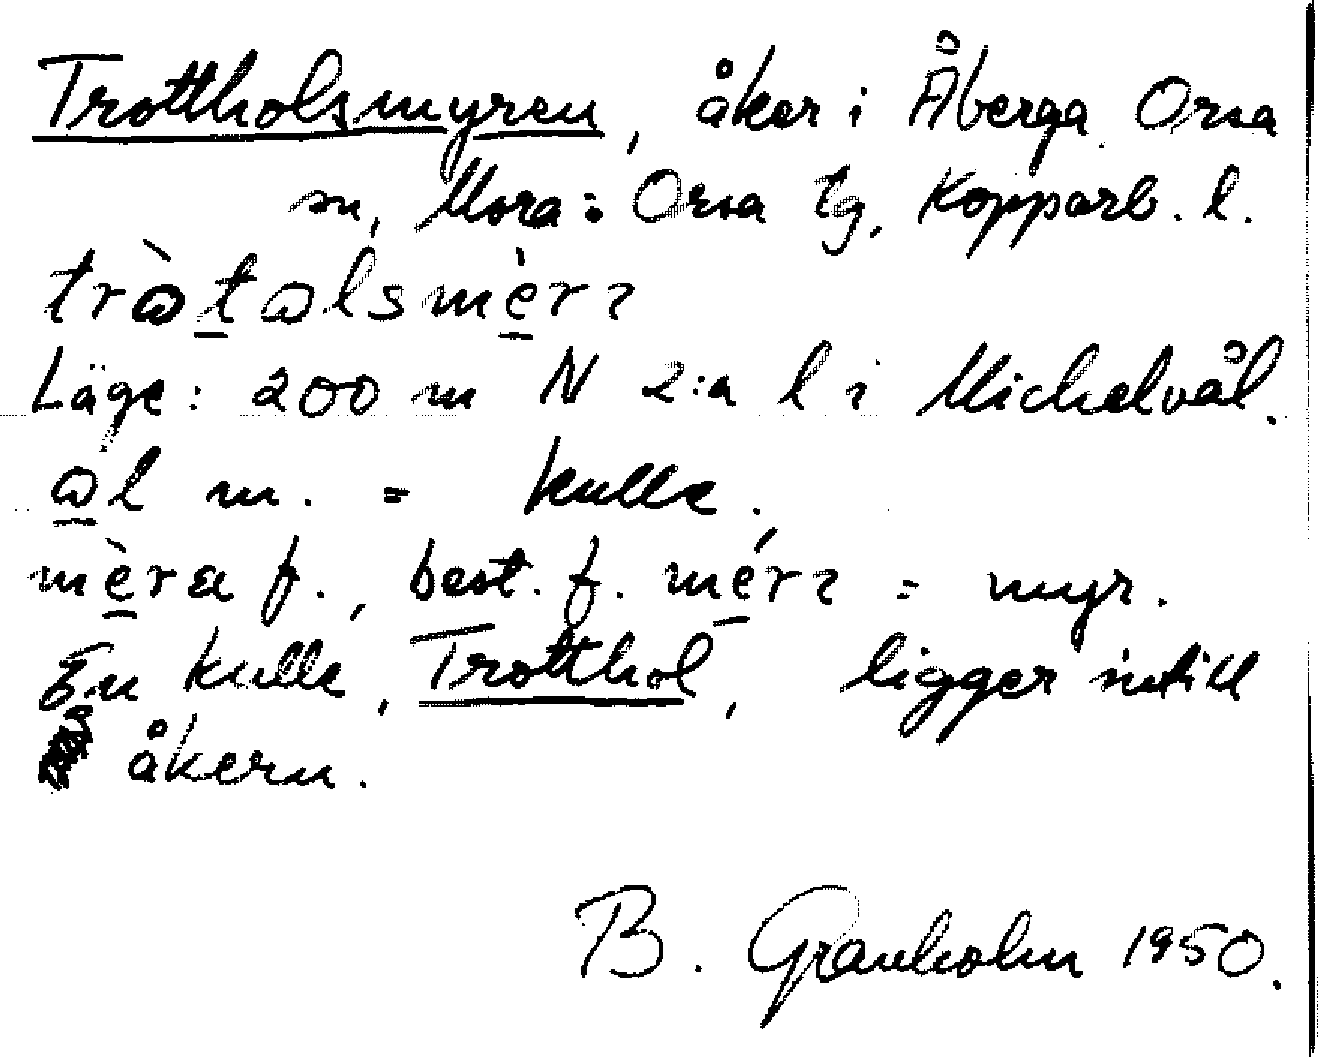 Trottholsmyren, åker i Åberga Orsa
sn, Mora: Orsa tg, Kopparb. l.
Läge: 200 m N 2:a l i Michelvål.
l m. = kulle.
f., best. f. = myr.
En kulle, Trotthol, ligger intill
åkern.
B. Granholm 1950.